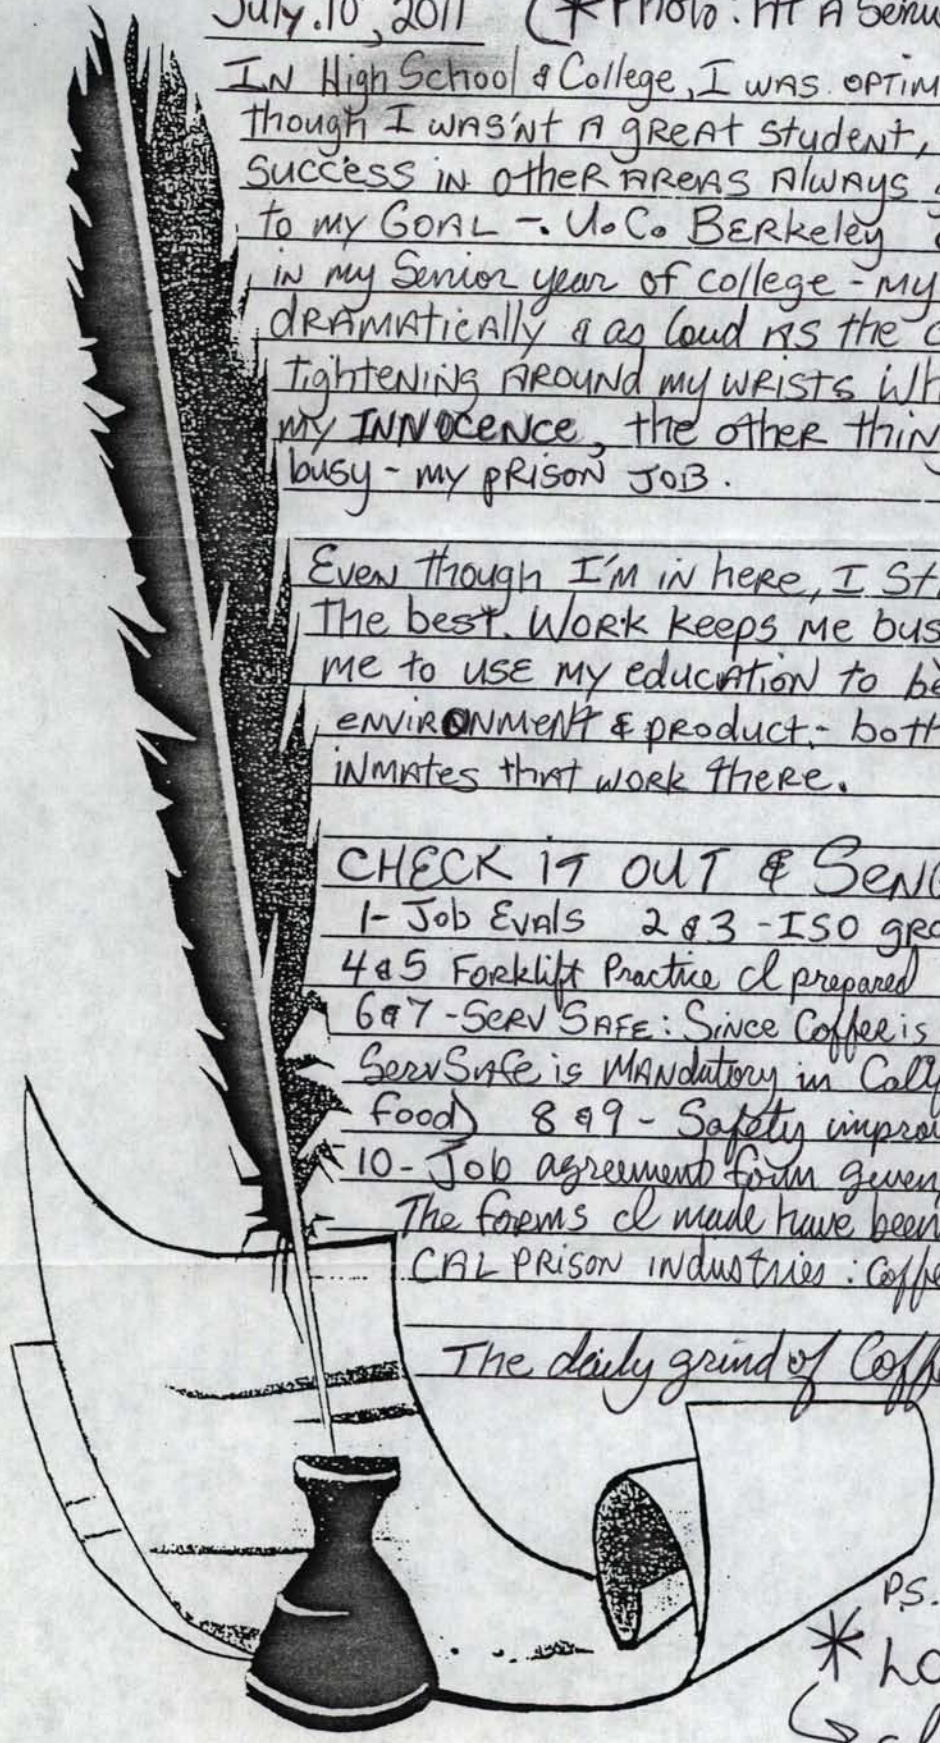 July.10, 2011 (*Photo: At A Seni
IN High School & College, I was optim
though I wAs'nt A gReAt student,
success in otheR AReAs AlwAys
to my GOAL -. U.C. BERkeley
in my Senior year of college - my
dRAmAticAlly & as loud As the c
tighteNiNg ARouNd my wRists wh
my INNOCENCE, the otheR thin
busy - my pRisoN JOB.
EveN though I'M iN heRe, I St
The best. WoRk keeps Me bus
me to use my educAtioN to be
eNviRONMeNt & product.- both
iNmAtes thAt woRk theRe.
CHECK iT OUT & SeN
1- Job EvAls 2 & 3 - ISO gr
4&5 Forklift Practice I prepared
6&7 - SeRv SAFe: Since Coffee is
ServSafe is MANdatory in Calif
food) 8 & 9 - Safety improv
10- Job agreement form given
The forms I made have been
CAL PRisoN iNdustRies : Coffe
The daily grind of Coff
P.S.
*